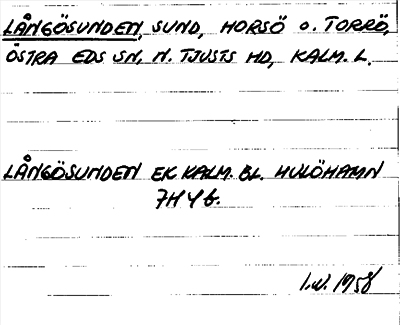 LÅNGÖSUNDEN, SUND, HORSÖ o. TORRÖ,
ÖSTRA EDS SN, N. TJUSTS HD, KALM. L.
LÅNGÖSUNDEN EK KALM. BL. HULÖHAMN
7H 4 b.
I.W. 1958